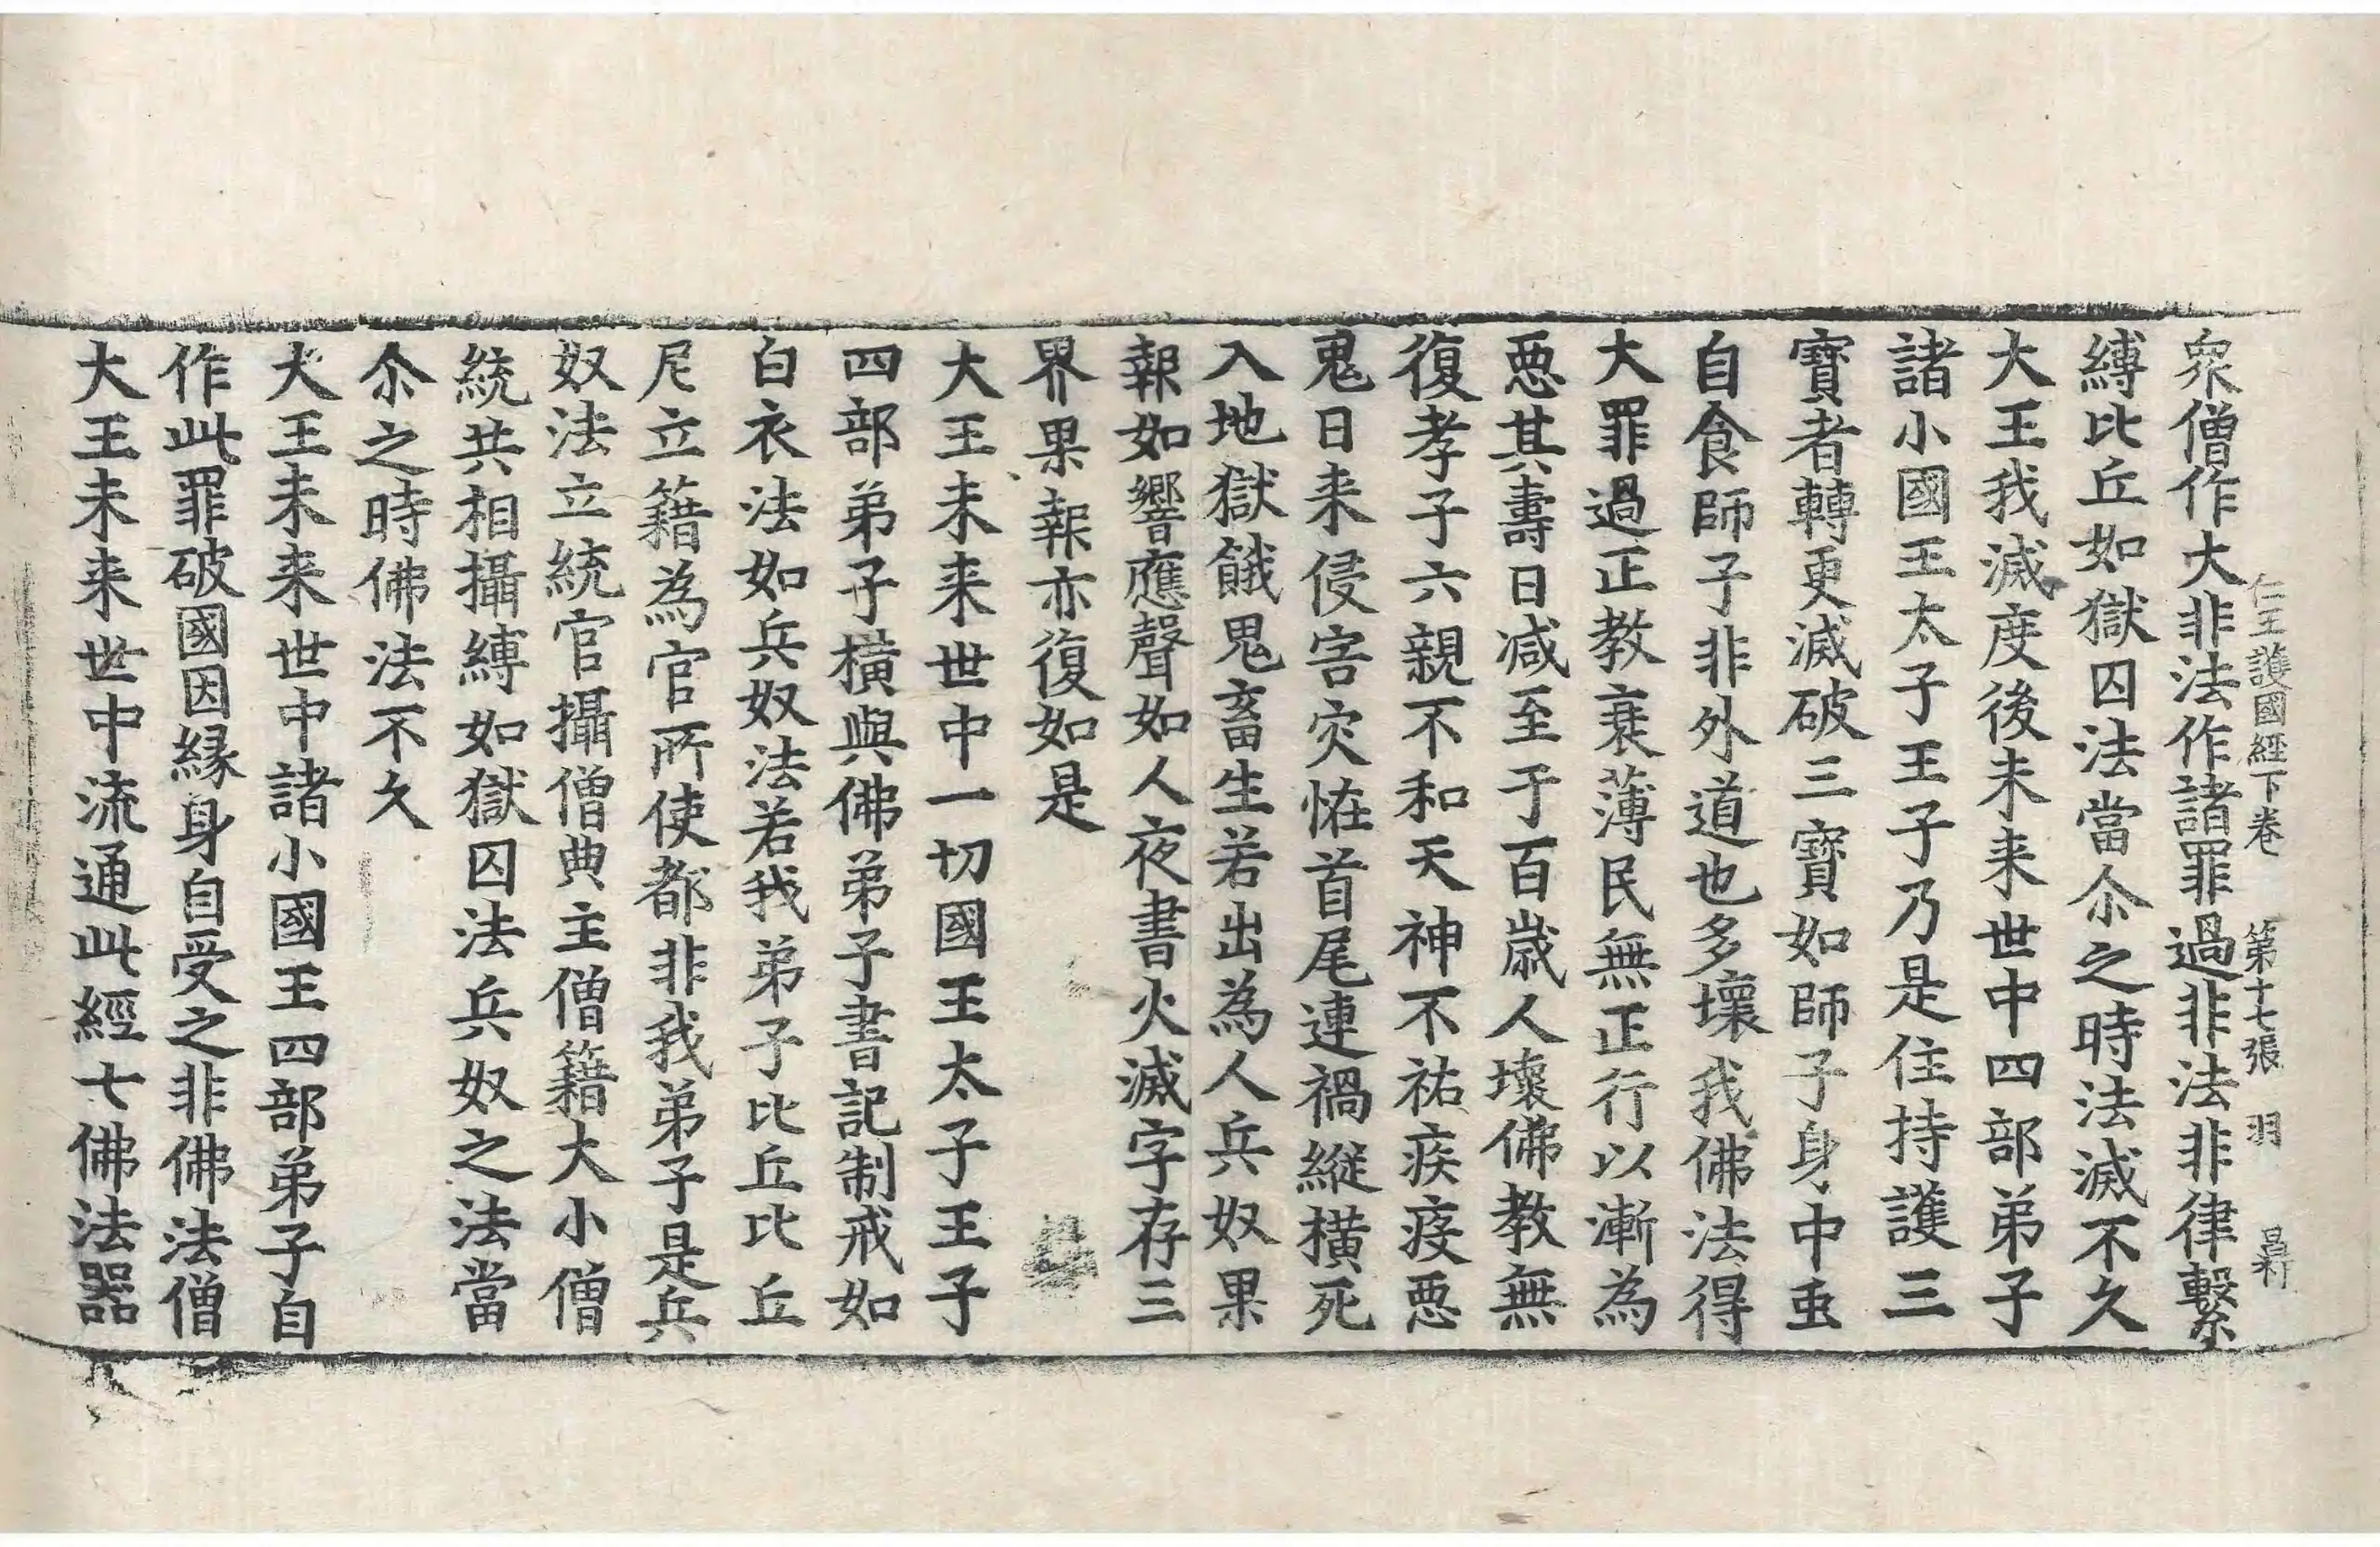 仁王護國經下卷　第十七張　羽
衆僧作大非法作諸罪過非法非律繫
縛比丘如獄囚法當尒之時法滅不久
大王我滅度後未来世中四部弟子
諸小國王太子王子乃是住持護三
寶者轉更滅破三寶如師子身中䖝
自食師子非外道也多壞我佛法得
大罪過正教衰薄民無正行以漸為
悪其壽日减至于百歲人壞佛教無
復孝子六親不和天神不祐疾疫悪
鬼日来侵害灾恠首尾連禍縱橫死
入地獄餓鬼畜生若出為人兵奴果
報如響應聲如人夜書火滅字存三
界果報亦復如是
大王未来世中一切國王太子王子
四部弟子橫與佛弟子書記制戒如
白衣法如兵奴法若我弟子比丘比丘
尼立籍為官所使都非我弟子是兵
奴法立統官攝僧典主僧籍大小僧
統共相攝縛如獄囚法兵奴之法當
尒之時佛法不久
大王未来世中諸小國王四部弟子自
作此罪破國因縁身自受之非佛法僧
大王未来世中流通此經七佛法器